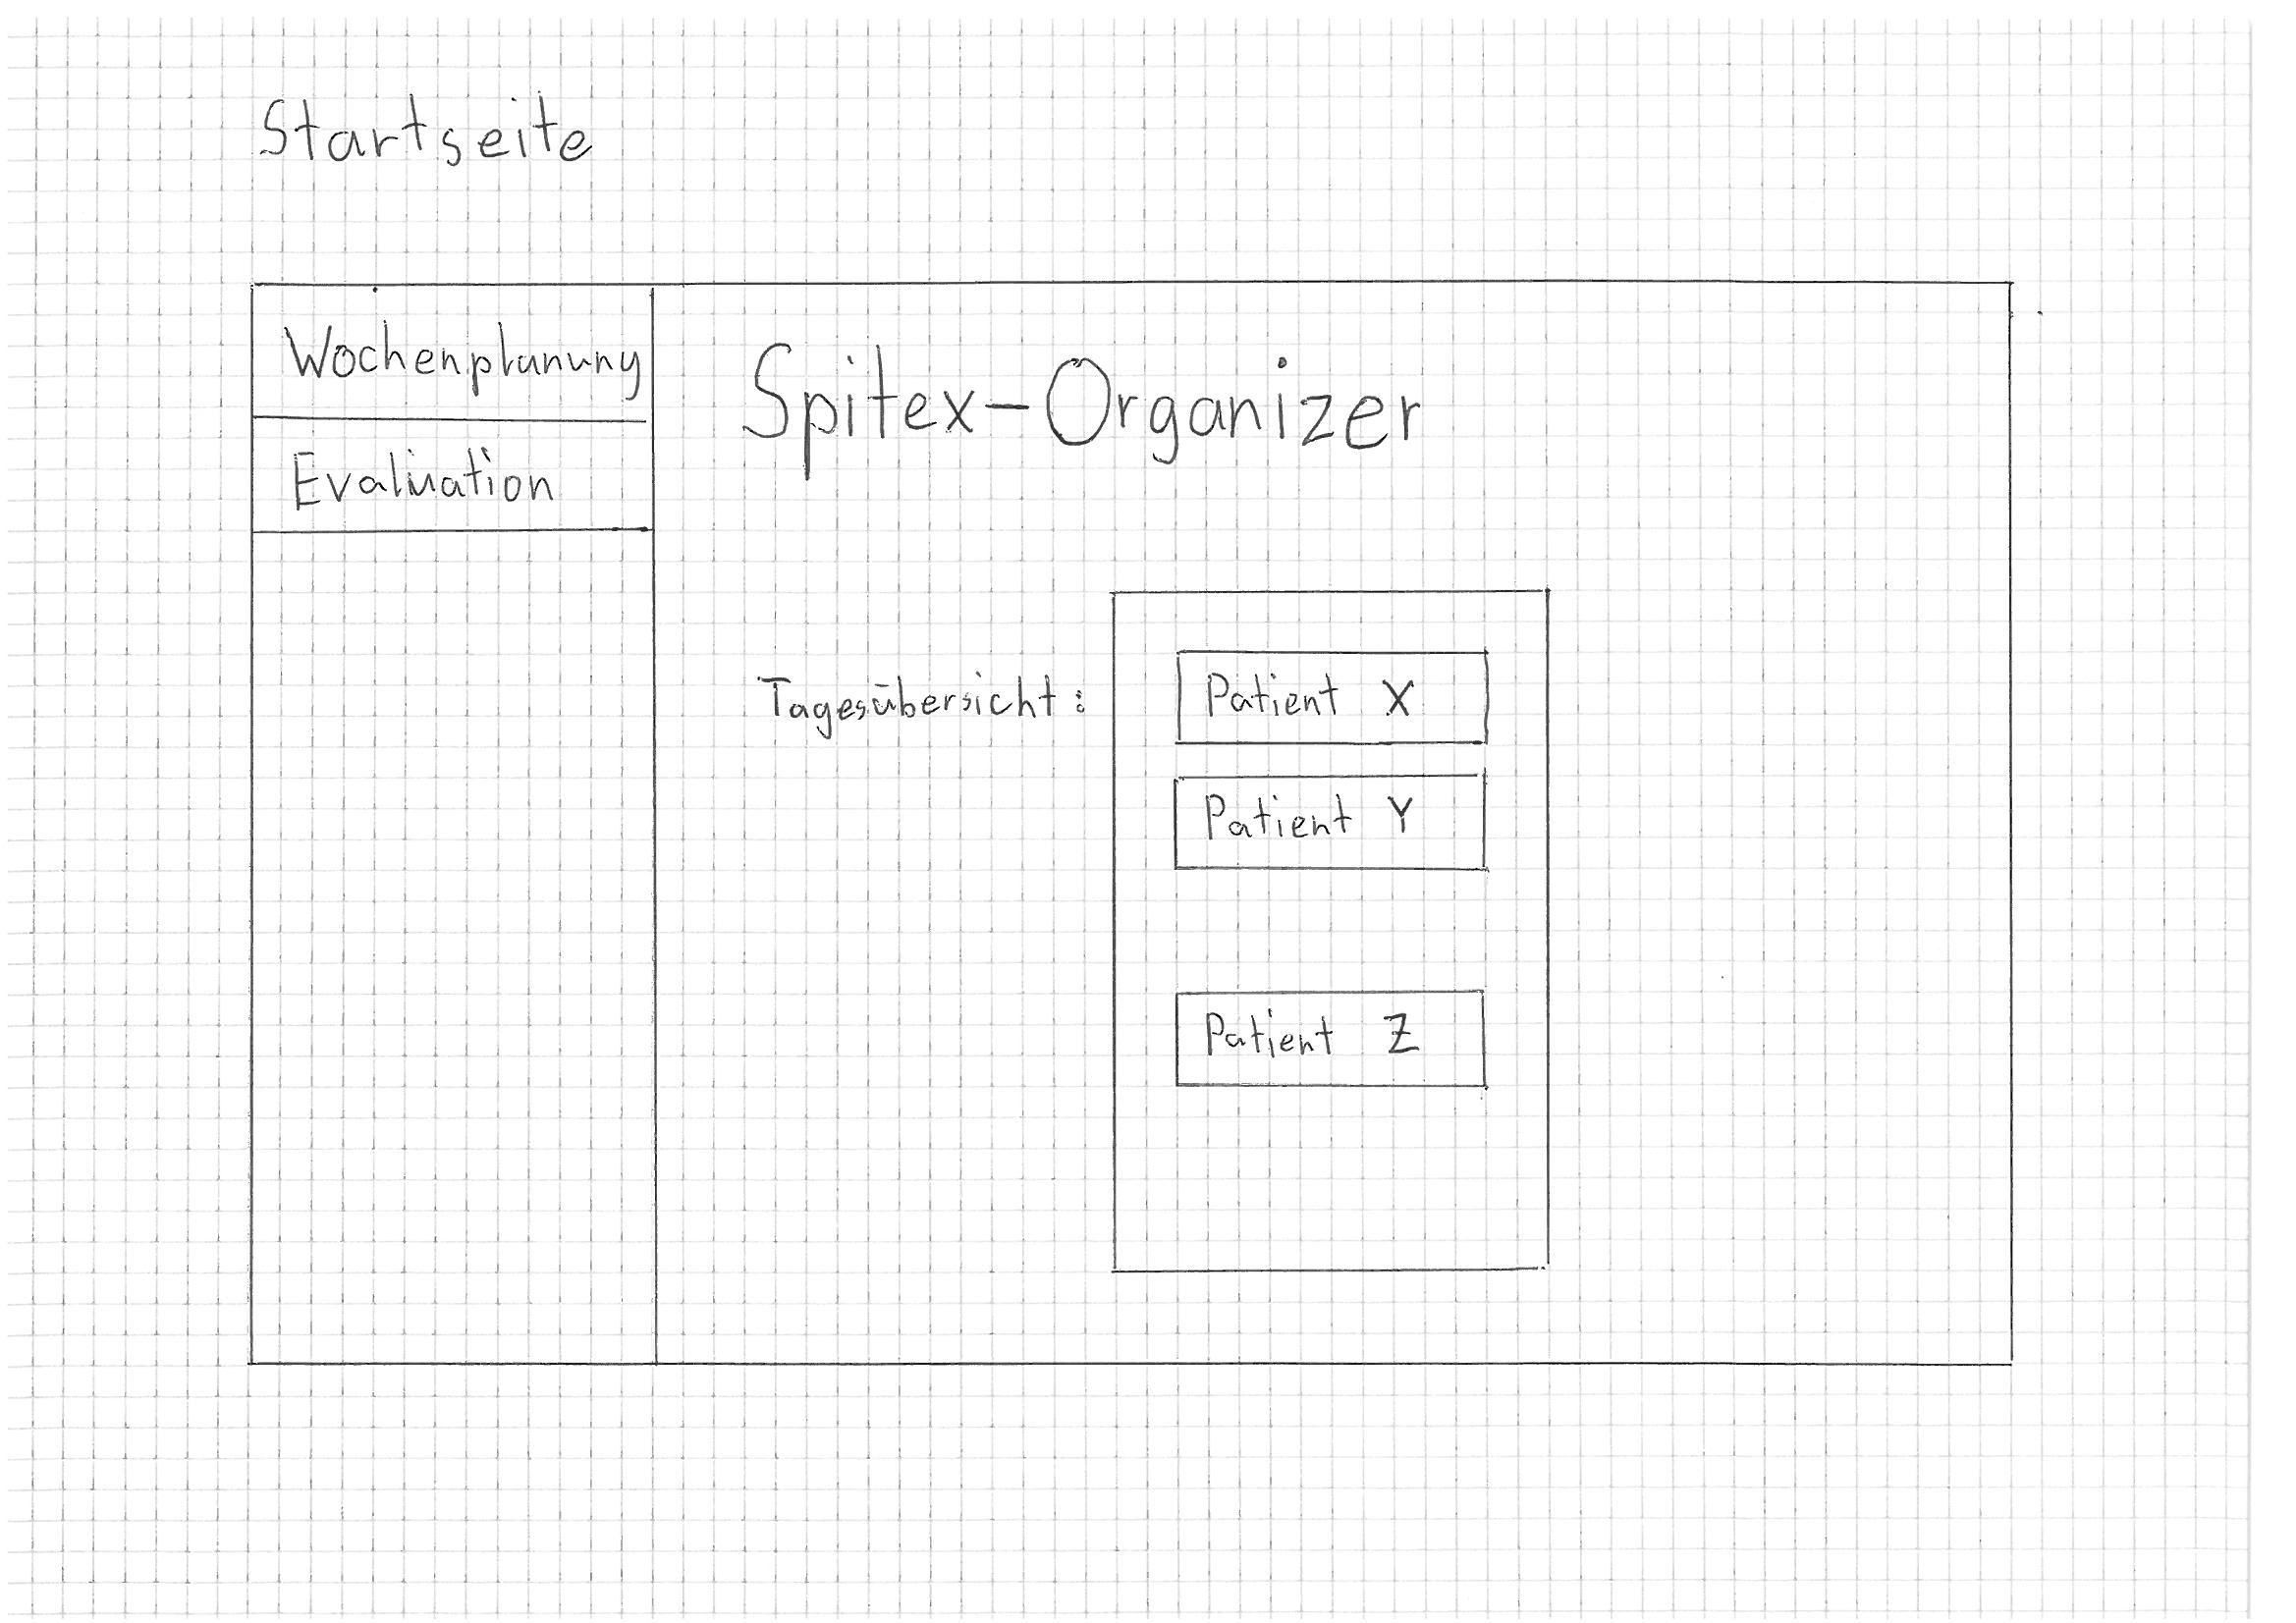 Startseite
Wochenplanung
Evaluation
Spitex-Organizer
Tagesübersicht:
Patient X
Patient Y
Patient Z